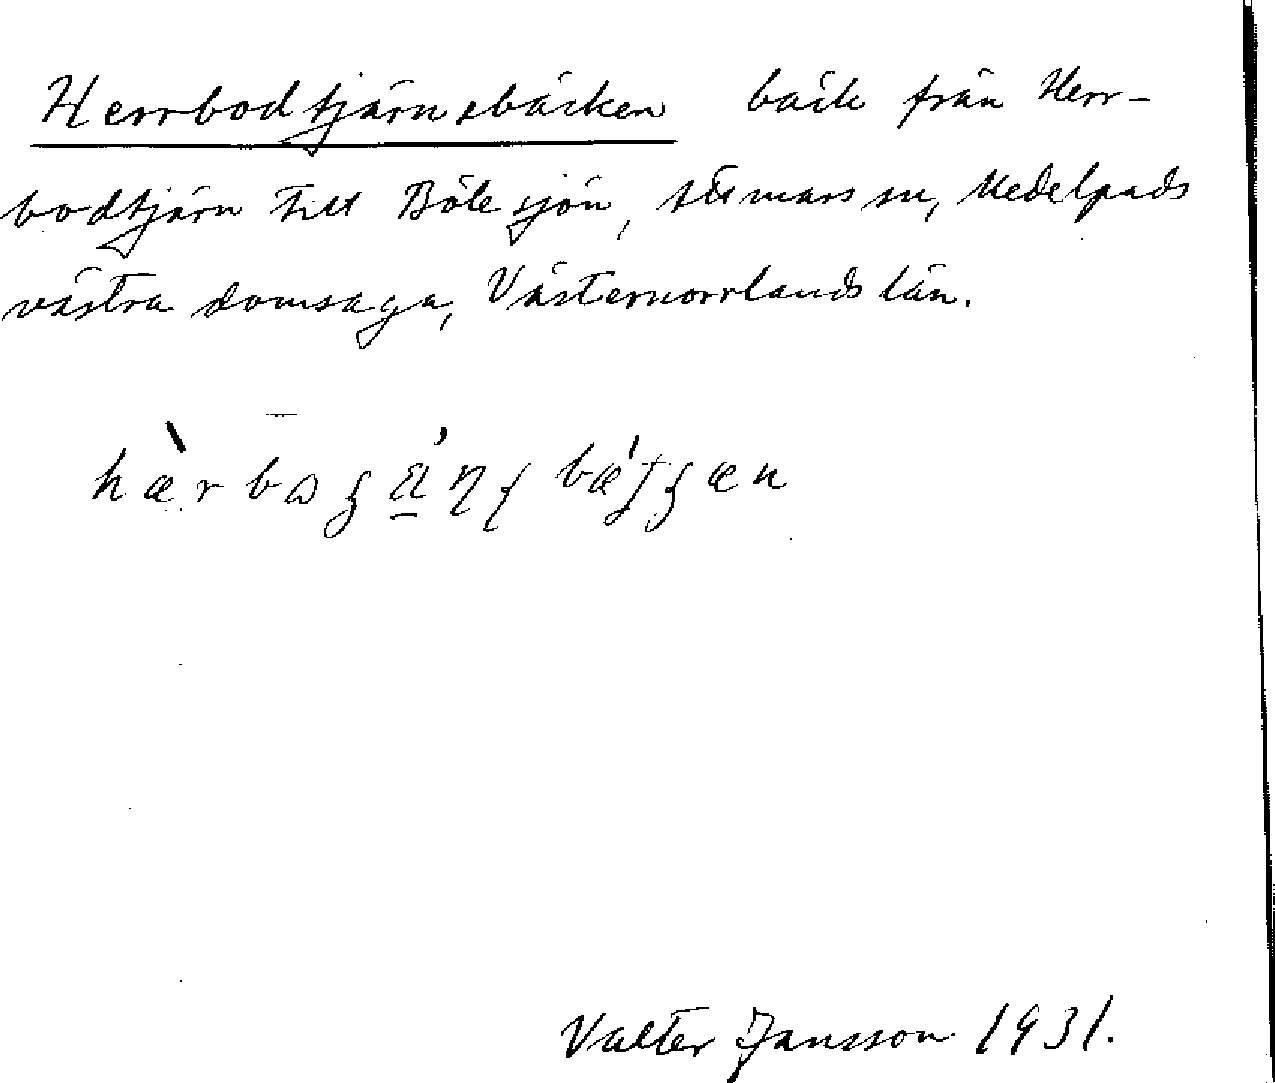 Herrbodtjärnsbäcken bäck från Herr-
bodtjärn till Bölesjön, Attmars sn, Medelpads
västra domsaga, Västernorrlands län.
Valter Jansson 1931.